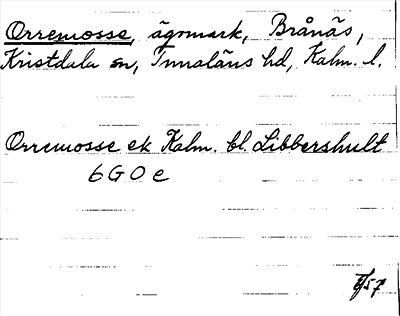 Orremosse, ägomark, Brånäs,
Kristdala sn, Tunaläns hd, Kalm. l.
Orremosse ek Kalm. bl. Libbershult
6G0e
/57